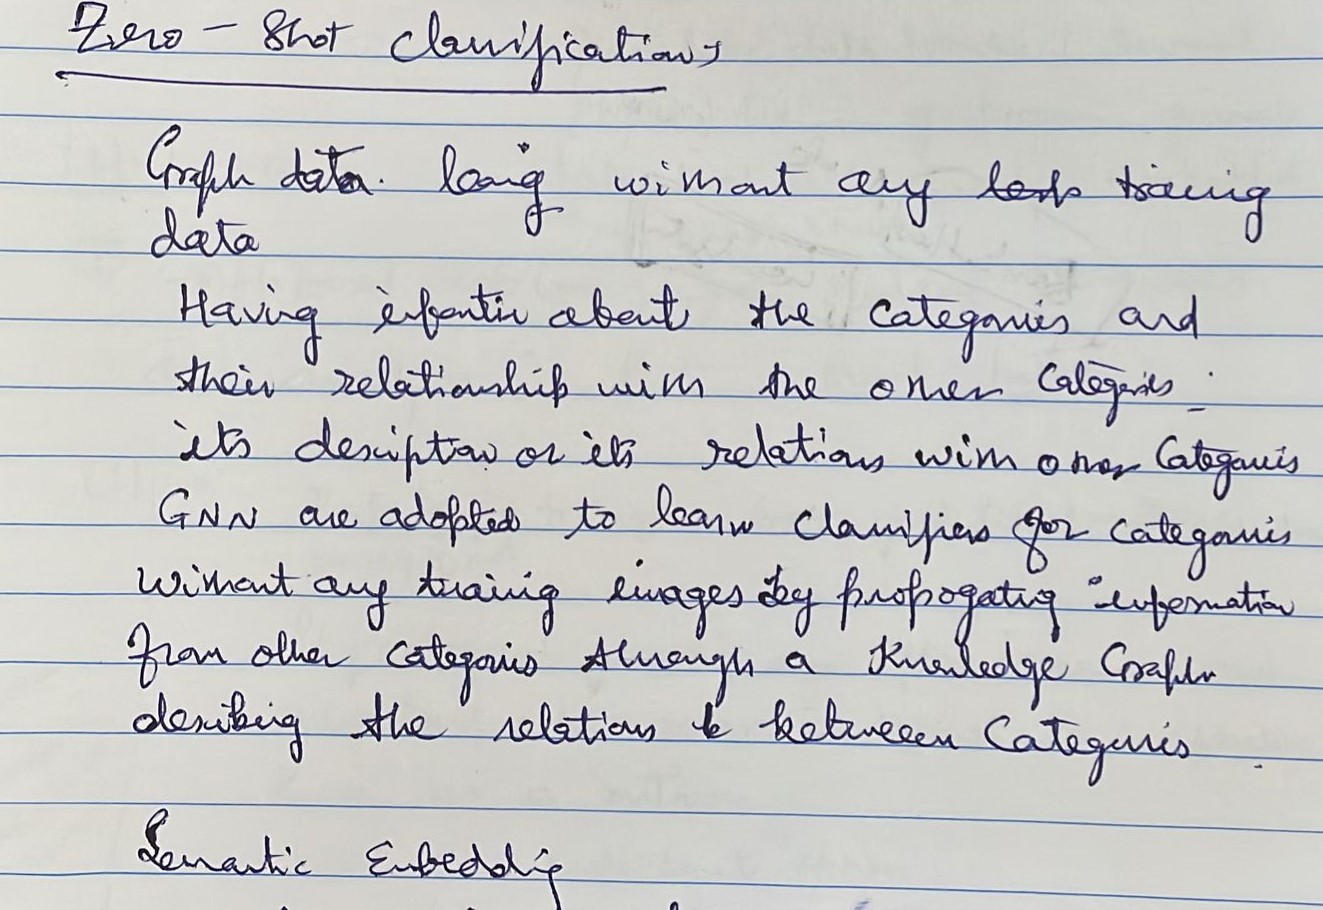 Zero-Shot Classifications
Graph data. without any training
data
Having about the categories and
their relationship with the other Categories.
its or its relations with other Categories
GNN are adopted to learn Classifiers for categories
without any training images by propogating information
from other categories through a Knowledge Graph
describing the relations between Categories.
Semantic Embedding